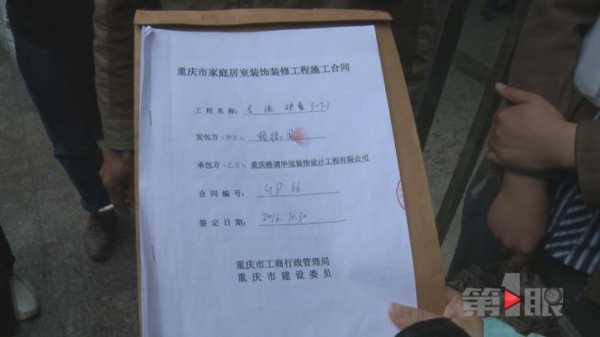 重庆市家庭居室装饰装修工程施工合同
工程名称: 3-7-1
发包方(甲方):
承包方(乙方): 重庆格调华滋装饰设计工程有限公司
合同编号: GP 66
签定日期: 2016.10.30
重庆市工商行政管理局
重庆市建设委员
第1眼